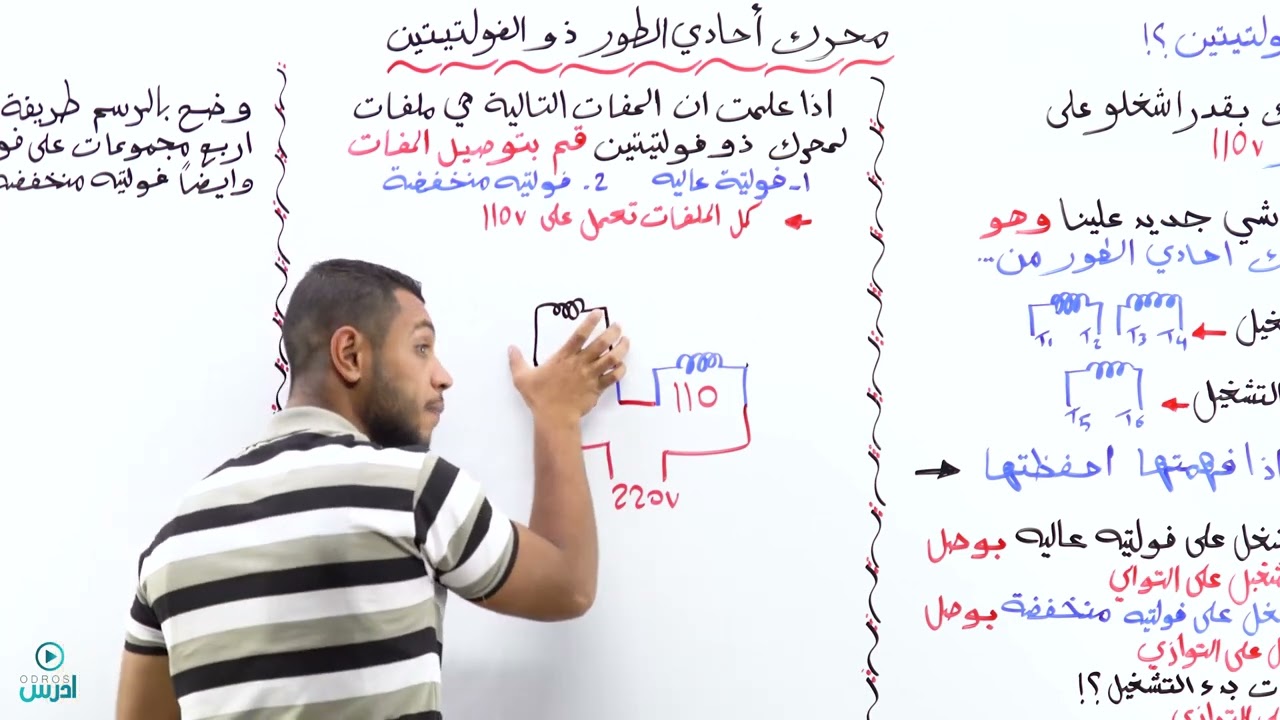 محرك أحادي الطور ذو الفولتيتين
ولتيتين ؟!
بقدر اشغلو على
110v
شي جديد علينا وهو
احادي الطور من...
T1 T2 T3 T4
التشغيل
T5 T6
اذا فهمتها احفظتها
شغل على فولتيه عاليه بوصل
على التوالي
على فولتيه منخفضة بوصل
على التوازي
بدء التشغيل ؟!
اذا علمت ان الملفات التالية هي ملفات
لمحرك ذو فولتيتين قم بتوصيل الملفات
1- فولتية عاليه 2. فولتيه منخفضة
كل الملفات تعمل على 110v
110
220v
وضح بالرسم طريقة
اربع مجموعات على فو
وايضاً فولتيه منخفضه
ODROS
ادرس